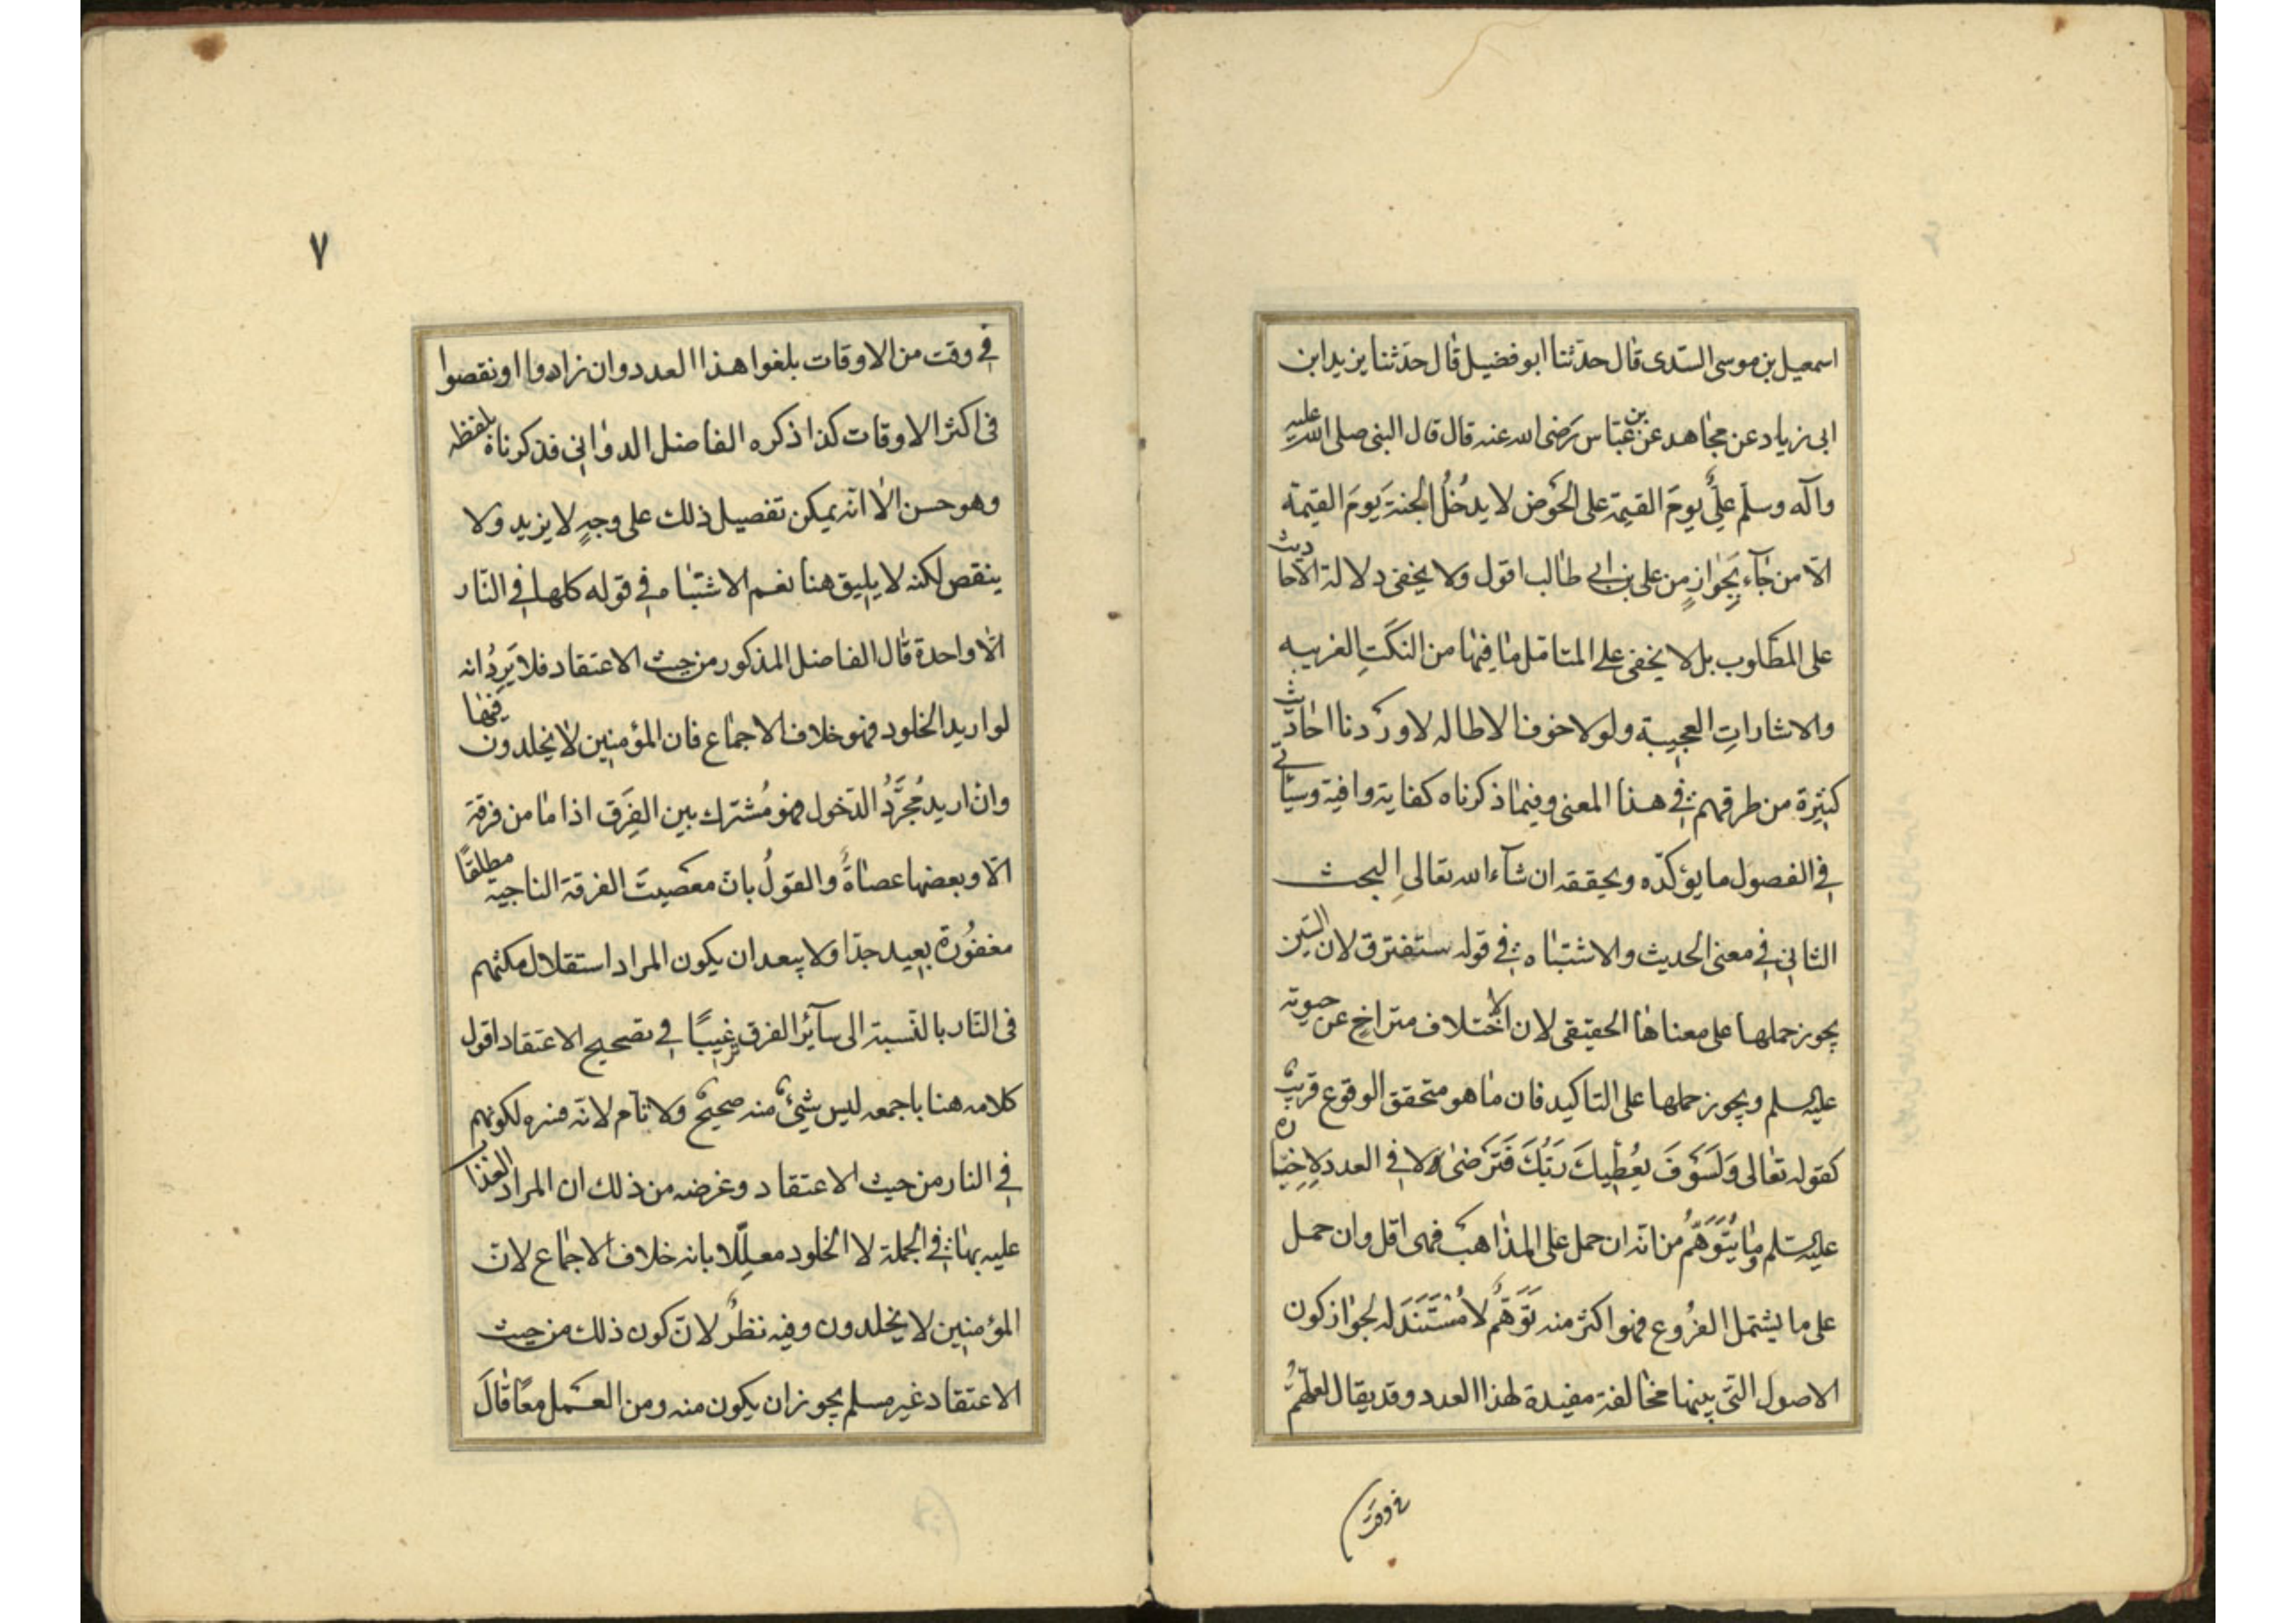 اسمعيل بن موسى السّدى قال حدّثنا ابو فضيل قال حدّثنا يزيد ابن
ابى زياد عن مجاهد عن بن عبّاس رَضى الله عنه قال قال النبى صلى الله عليه
وآله وسلّم علىٌّ يومَ القيمة على الحَوض لا يدخُلُ الجنةَ يومَ القيمة
الّا من جآء بِجَوازٍ من على بن ابى طالب اقول ولا يخفى دلالة الاحاديث
على المطلوب بل لا يخفى على المتامّل ما فيها من النكَتِ الغريبه
والاشاراتِ العجيبة ولولا خوف الاطاله لاوردنا احاديث
كثيرة من طرقهم فى هذا المعنى وفيما ذكرناه كفاية وافية وسياتى
فى الفصول ما يؤكدّه ويحققه ان شآء الله تعالى البحث
الثانى فى معنى الحديث والاشتباه فى قوله ستفترق لان السّين
يجوز حملها على معناها الحقيقى لان الاختلاف متراخٍ عن حيوته
عليه السلم ويجوز حملها على التاكيد فان ما هو متحقق الوقوع قريبٌ
كقوله تعالى وَلَسَوفَ يُعْطِيكَ رَبُّكَ فَتَرضىٰ ولا فى العدد لاِخِبَاره
عليه السّلم وما يُتَوَهَّمُ من انّه ان حمل على المذاهب فهى اقل وان حمل
على ما يشتمل الفرُوع فهو اكثر منه تَوَهُّمٌ لا مُسْتَنَدَ له لجواز كون
الاصول التى بينها مخالفة مفيدة لهذا العدد وقد يقال لعلّهُمُ
فى وقت
٧
فى وقت من الاوقات بلغوا هذا العدد وان زادوا او نقصوا
فى اكثر الاوقات كذا ذكره الفاضل الدوانى فذكرناه بلفظه
وهو حسن الّا انّه يمكن تفصيل ذلك على وجهٍ لا يزيد ولا
ينقص لكنه لا يليق هنا نعم الاشتباه فى قوله كلها فى النّار
الّا واحدة قال الفاضل المذكور من حيث الاعتقاد فلا يَرِدُ انه
لو اريد الخلود فهو خلاف الاجماع فان المؤمنين لا يخلدون فيها
وان اريد مُجرَّدُ الدّخول فهو مُشترك بين الفِرَق اذا ما من فرقة
الّا وبعضها عصاةٌ والقولُ بانّ معصيتَ الفرقة الناجية مطلقًا
مغفُورة بعيد جدّا ولا يبعد ان يكون المراد استقلال مكثهم
فى النّار بالنّسبة الى سآئر الفرق ترغيبًا فى تصحيح الاعتقاد اقول
كلامه هنا باجمعه ليس شيئٌ منه صحيحٌ ولا تآم لانّه فسره لكونهم
فى النار من حيث الاعتقاد وغرضه من ذلك ان المراد العذاب
عليه بها فى الجملة لا الخلود معلّلا بانه خلاف الاجماع لانّ
المؤمنين لا يخلدون وفيه نظرٌ لانّ كون ذلك من حيث
الاعتقاد غير مسلم يجوز ان يكون منه ومن العَمَل معًا قالَ